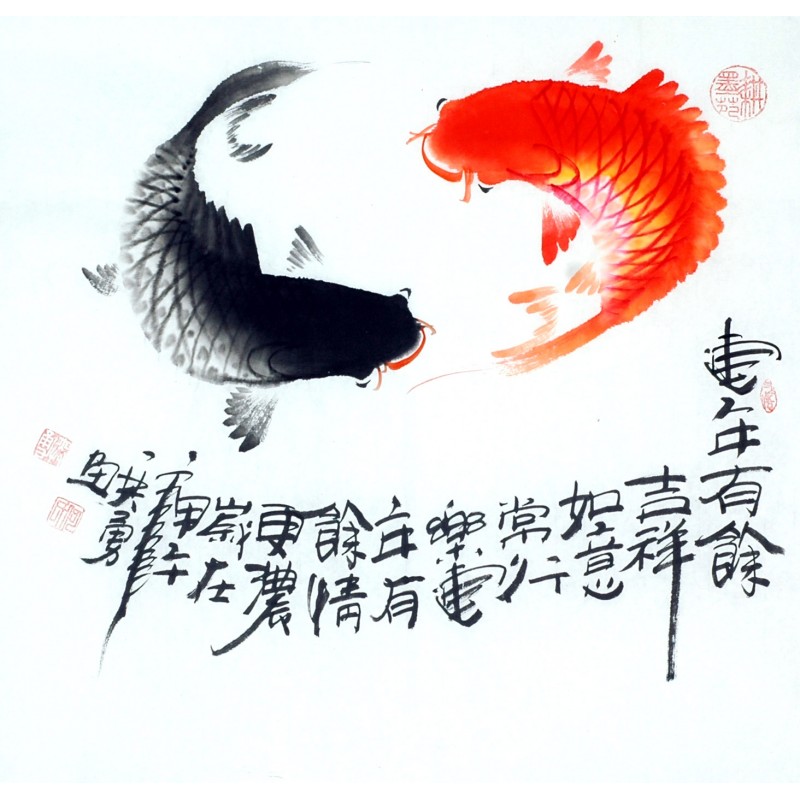 連年有餘
吉祥
如意
常行
樂連
年有
餘情
更濃
歲在
甲午
勇
畫